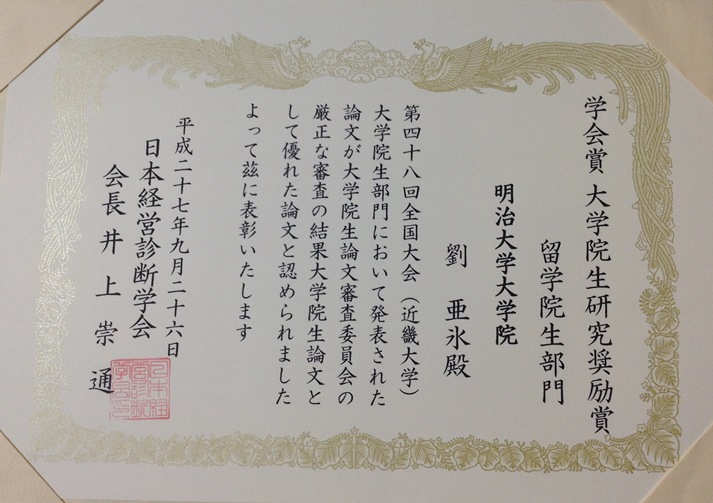 学会賞 大学院生研究奨励賞
留学院生部門
明治大学大学院
劉 亜氷殿
第四十八回全国大会（近畿大学）
大学院生部門において発表された
論文が大学院生論文審査委員会の
厳正な審査の結果大学院生論文と
して優れた論文と認められました
よって茲に表彰いたします
平成二十七年九月二十六日
日本経営診断学会
会長 井上 崇通
日本経
営診断
学会印